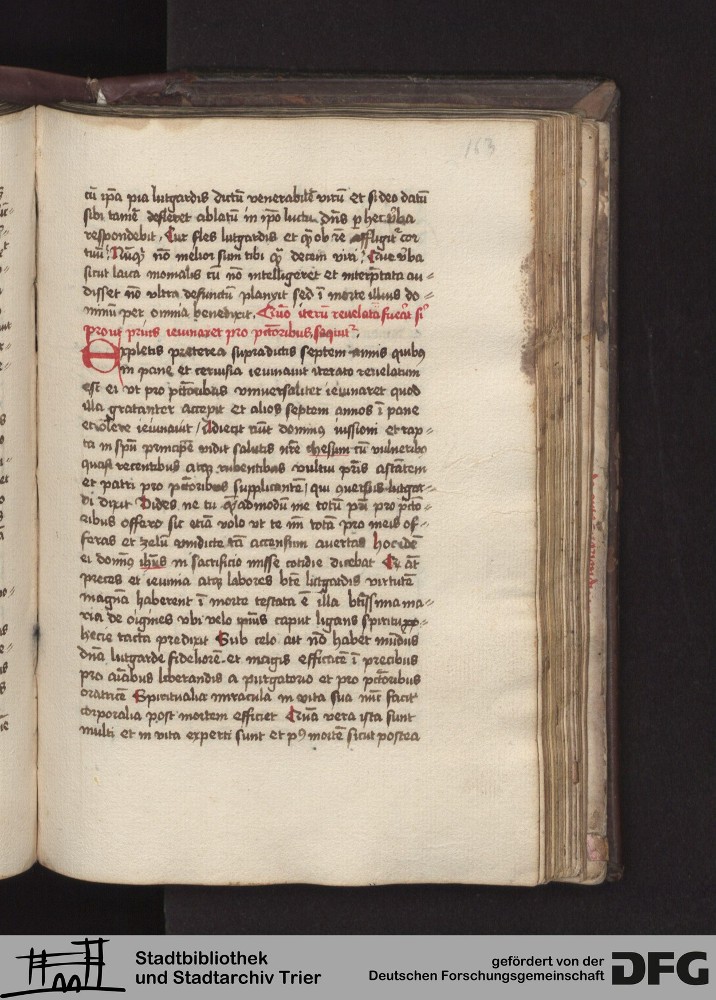 163
cū ip̄a pia lutgardis dictū venerabilē virū et si deo datū
sibi tamē defleret ablatū in ip̄o luctu dn̄s p̄ hec v̄ba
respondebit, Cur fles lutgardis et q̄ ob rē affligit᷑ cor
tuū, Nūq̄ nō melior sum tibi q̄ decem viri, Que v̄ba
sicut laica monialis cū nō intelligeret et interp̄tata au=
disset nō vltra defunctū planxit sed ī morte illius do=
minū per omnia benedixit. Quō iterū revelatū fuerit
pro vt prius ieiunaret pro pctōribus, sequit᷑
Expletis preterea supradictis septem annis quibꝯ
in pane et ceruisia ieiunauit iterato reuelatum
est ei vt pro pctōribus vniuersaliter ieiunaret quod
illa gratanter accepit et alios septem annos ī pane
et olere ieiunauit, Adiecit nūt dominus iussioni et rap=
ta in spū vidit salutis nr̄e ihesum cū vulneribꝯ
quasi recentibus atq̄ rubentibus vultui pr̄is astātem
et patri pro pctōribus supplicantē, qui lutgar=
di dixit Vides ne tu q̄ admodū me totū pr̄i pro pctō=
ribus offero sic etiā volo vt te m̄ totā pro meis of=
feras et zelū vindicte tā accensum auertas hoc idē
ei domiꝯ ih̄us in sacrificio misse cotidie dicebat Et āt
preces et ieiunia atq̄ labores bt̄e lutgardis virtutē
magnā haberent ī morte testata ē illa bt̄issima ma=
ria de oignies vbi velo caput ligans spiritu ꝓ=
hecie tacta predixit Sub celo ait nō habet mūdus
dn̄a lutgarde fideliorē et magis efficacē ī precibus
pro aīabus liberandis a purgatorio et pro pctōribus
oratricē Spiritualia miracula in vita sua nūc facit
corporalia post mortem efficiet Quā vera ista sunt
multi et in vita experti sunt et pꝯ mortē sicut postea
Stadtbibliothek
und Stadtarchiv Trier
gefördert von der
Deutschen Forschungsgemeinschaft
DFG